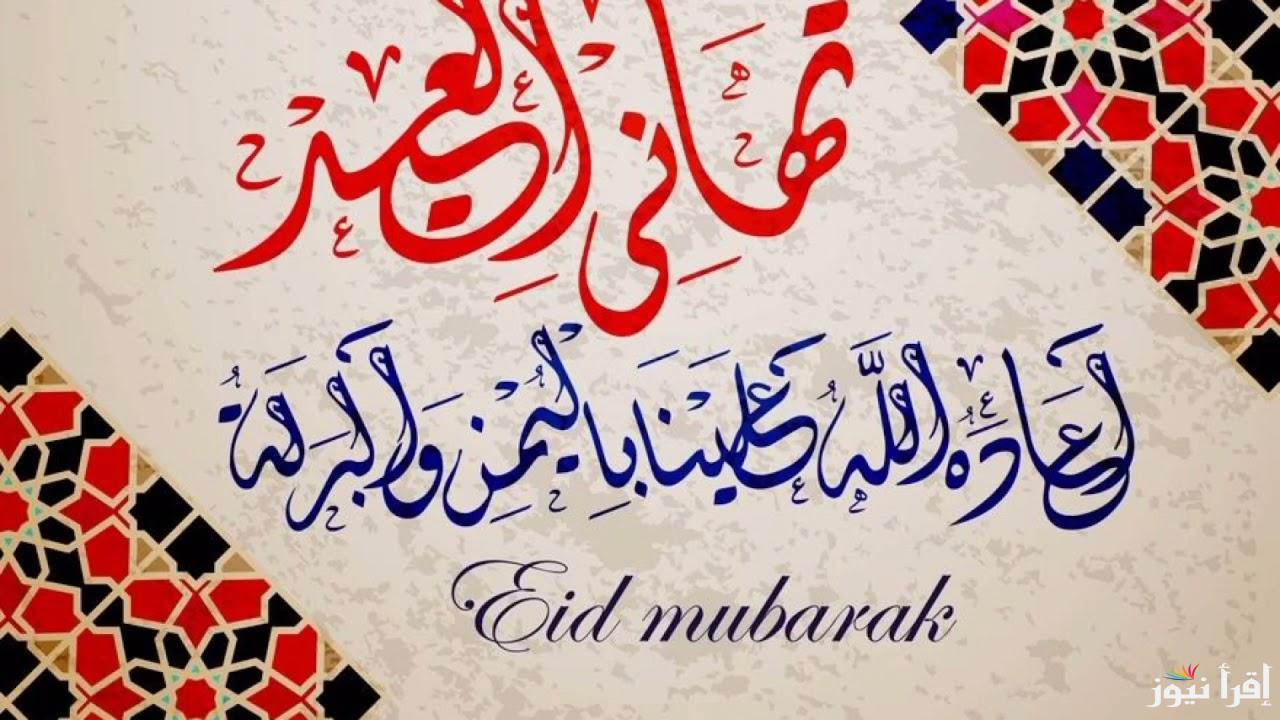 تهاني العيد
أعاده الله علينا باليمن والبركة
Eid mubarak
إقرأ نيوز